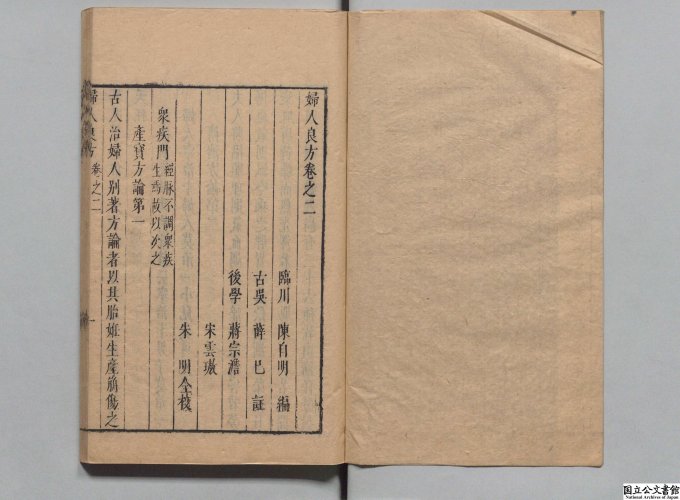 婦人良方卷之二
臨川 陳自明 編
古吳 薛己 註
後學 蔣宗澹
宋雲璈
朱明仝校
衆疾門 經脉不調衆疾
生焉故以次之
產寶方論第一
古人治婦人別著方論者以其胎姙生產崩傷之
婦人良方 卷之二 一
国立公文書館
National Archives of Japan